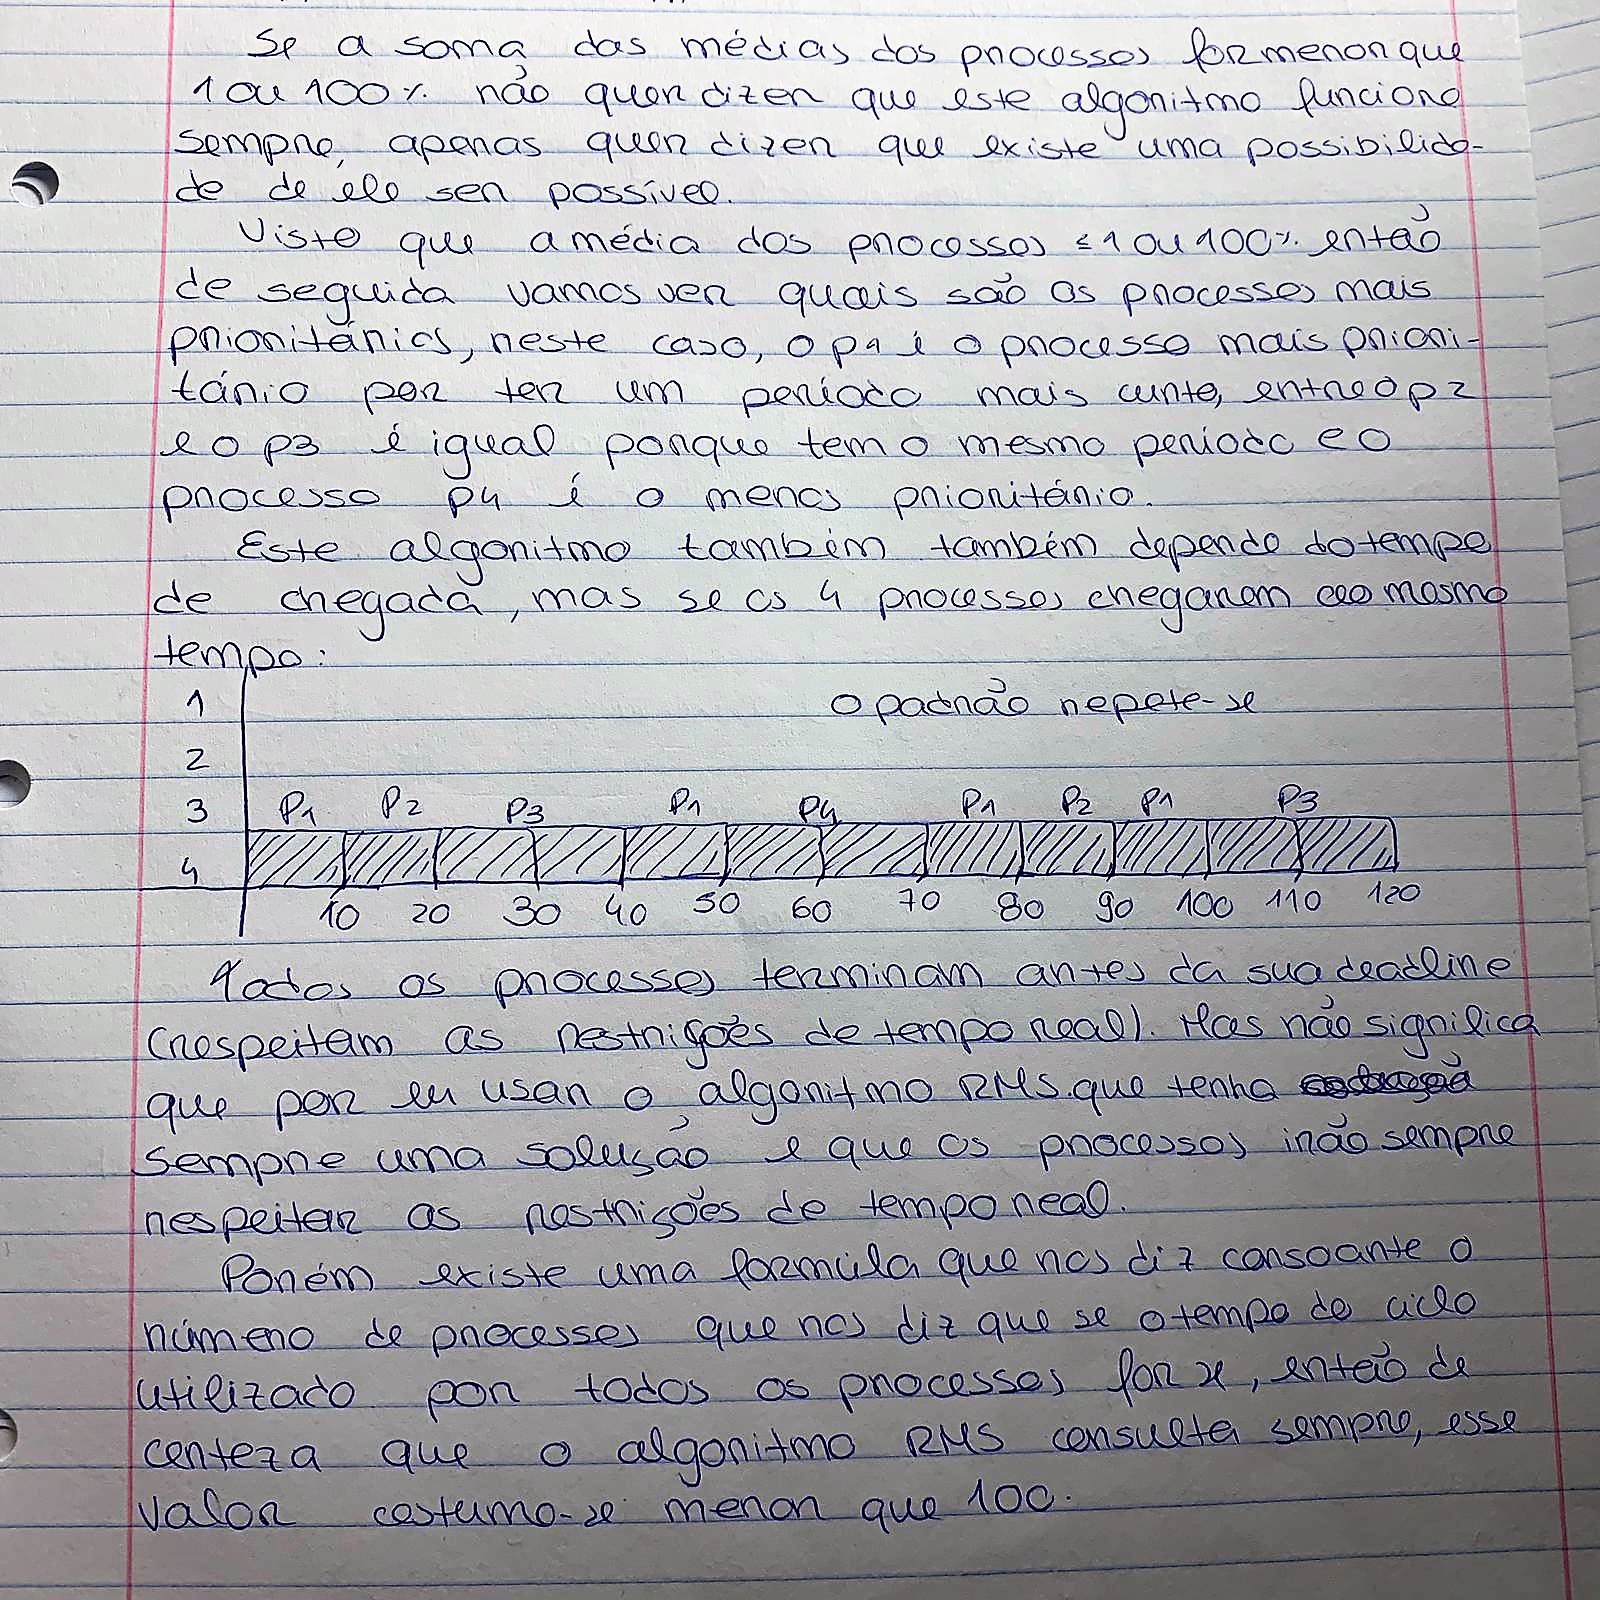 Se a soma das médias dos processos for menor que
1 ou 100% não quer dizer que este algoritmo funcione
sempre, apenas quer dizer que existe uma possibilida-
de de ele ser possível.
Visto que a média dos processos ≤ 1 ou 100% então
de seguida vamos ver quais são os processos mais
prioritários, neste caso, o p1 é o processo mais priori-
tário por ter um período mais curto, entre o p2
e o p3 é igual porque tem o mesmo período e o
processo p4 é o menos prioritário.
Este algoritmo também também depende do tempo
de chegada, mas se os 4 processos chegarem ao mesmo
tempo:
1 O padrão repete-se
2
3 P1 P2 P3 P1 P4 P1 P2 P1 P3
4
10 20 30 40 50 60 70 80 90 100 110 120
Todos os processos terminam antes da sua deadline
(respeitam as restrições de tempo real). Mas não significa
que por eu usar o algoritmo RMS que tenha
sempre uma solução e que os processos irão sempre
respeitar as restrições de tempo real.
Porém existe uma formula que nos diz consoante o
número de processos que nos diz que se o tempo do ciclo
utilizado por todos os processos for x, então de
certeza que o algoritmo RMS consulta sempre, esse
valor costuma-se menor que 100.